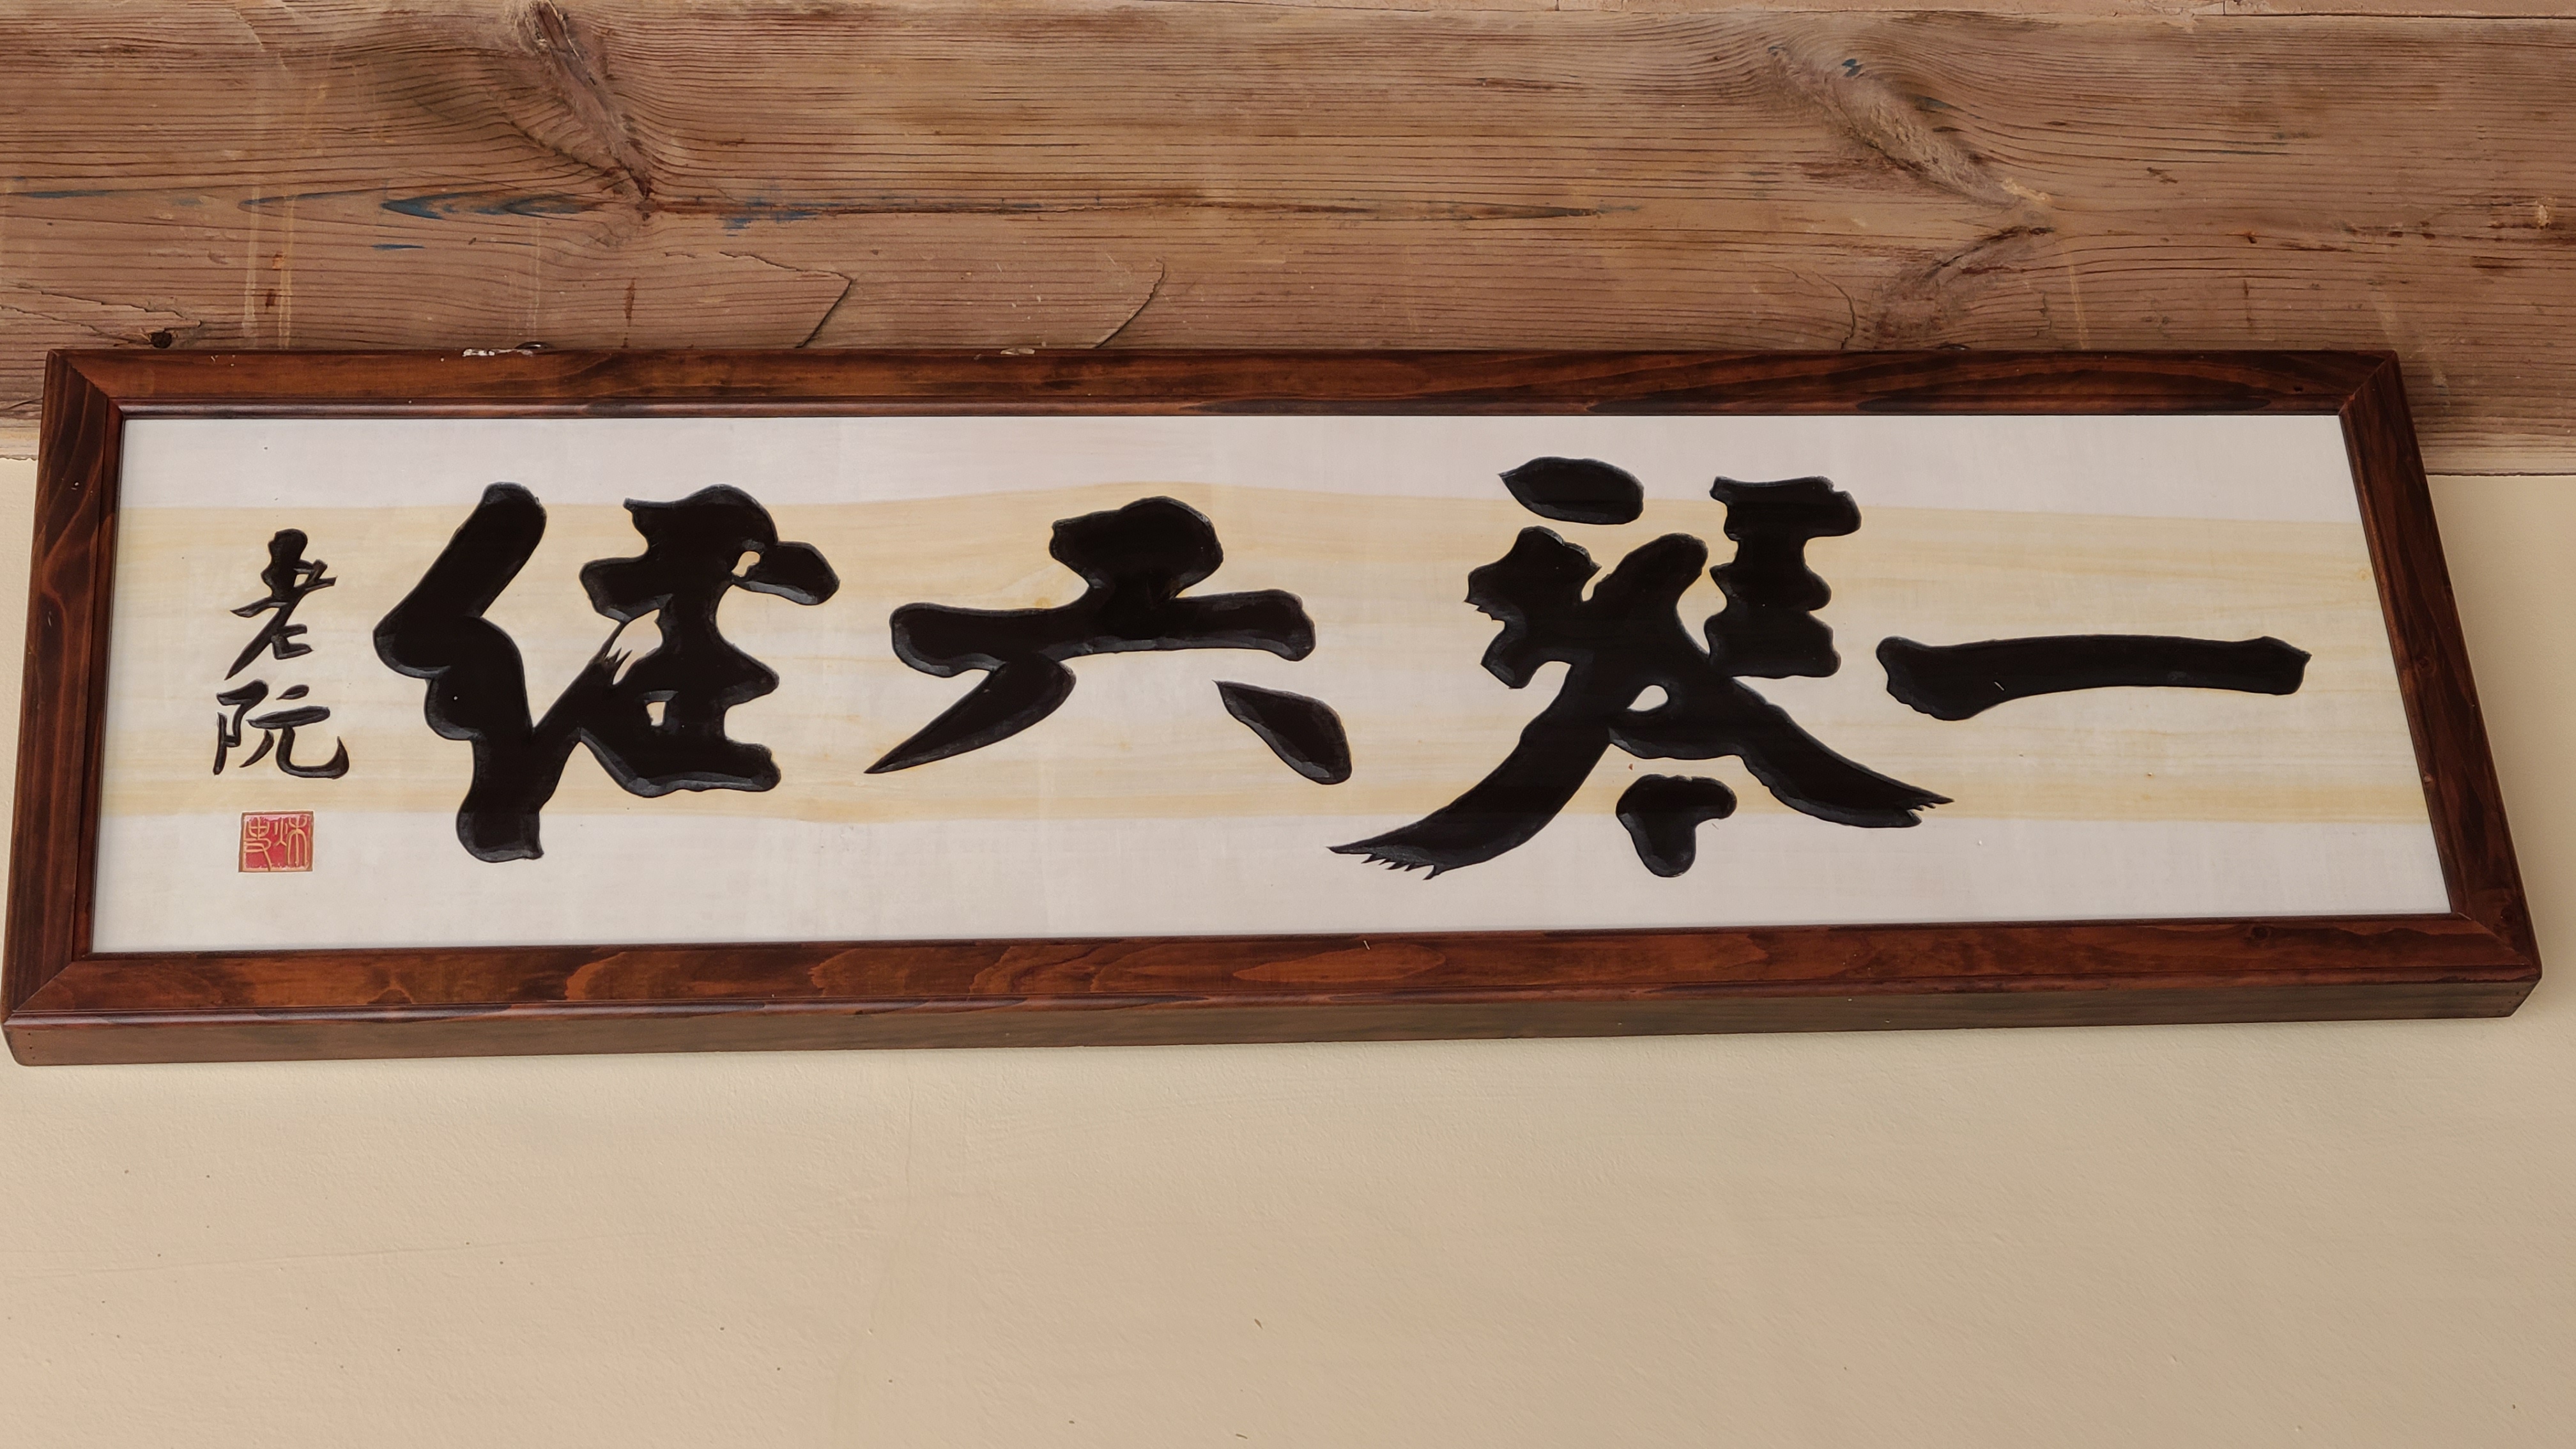 一琴六健
老阮